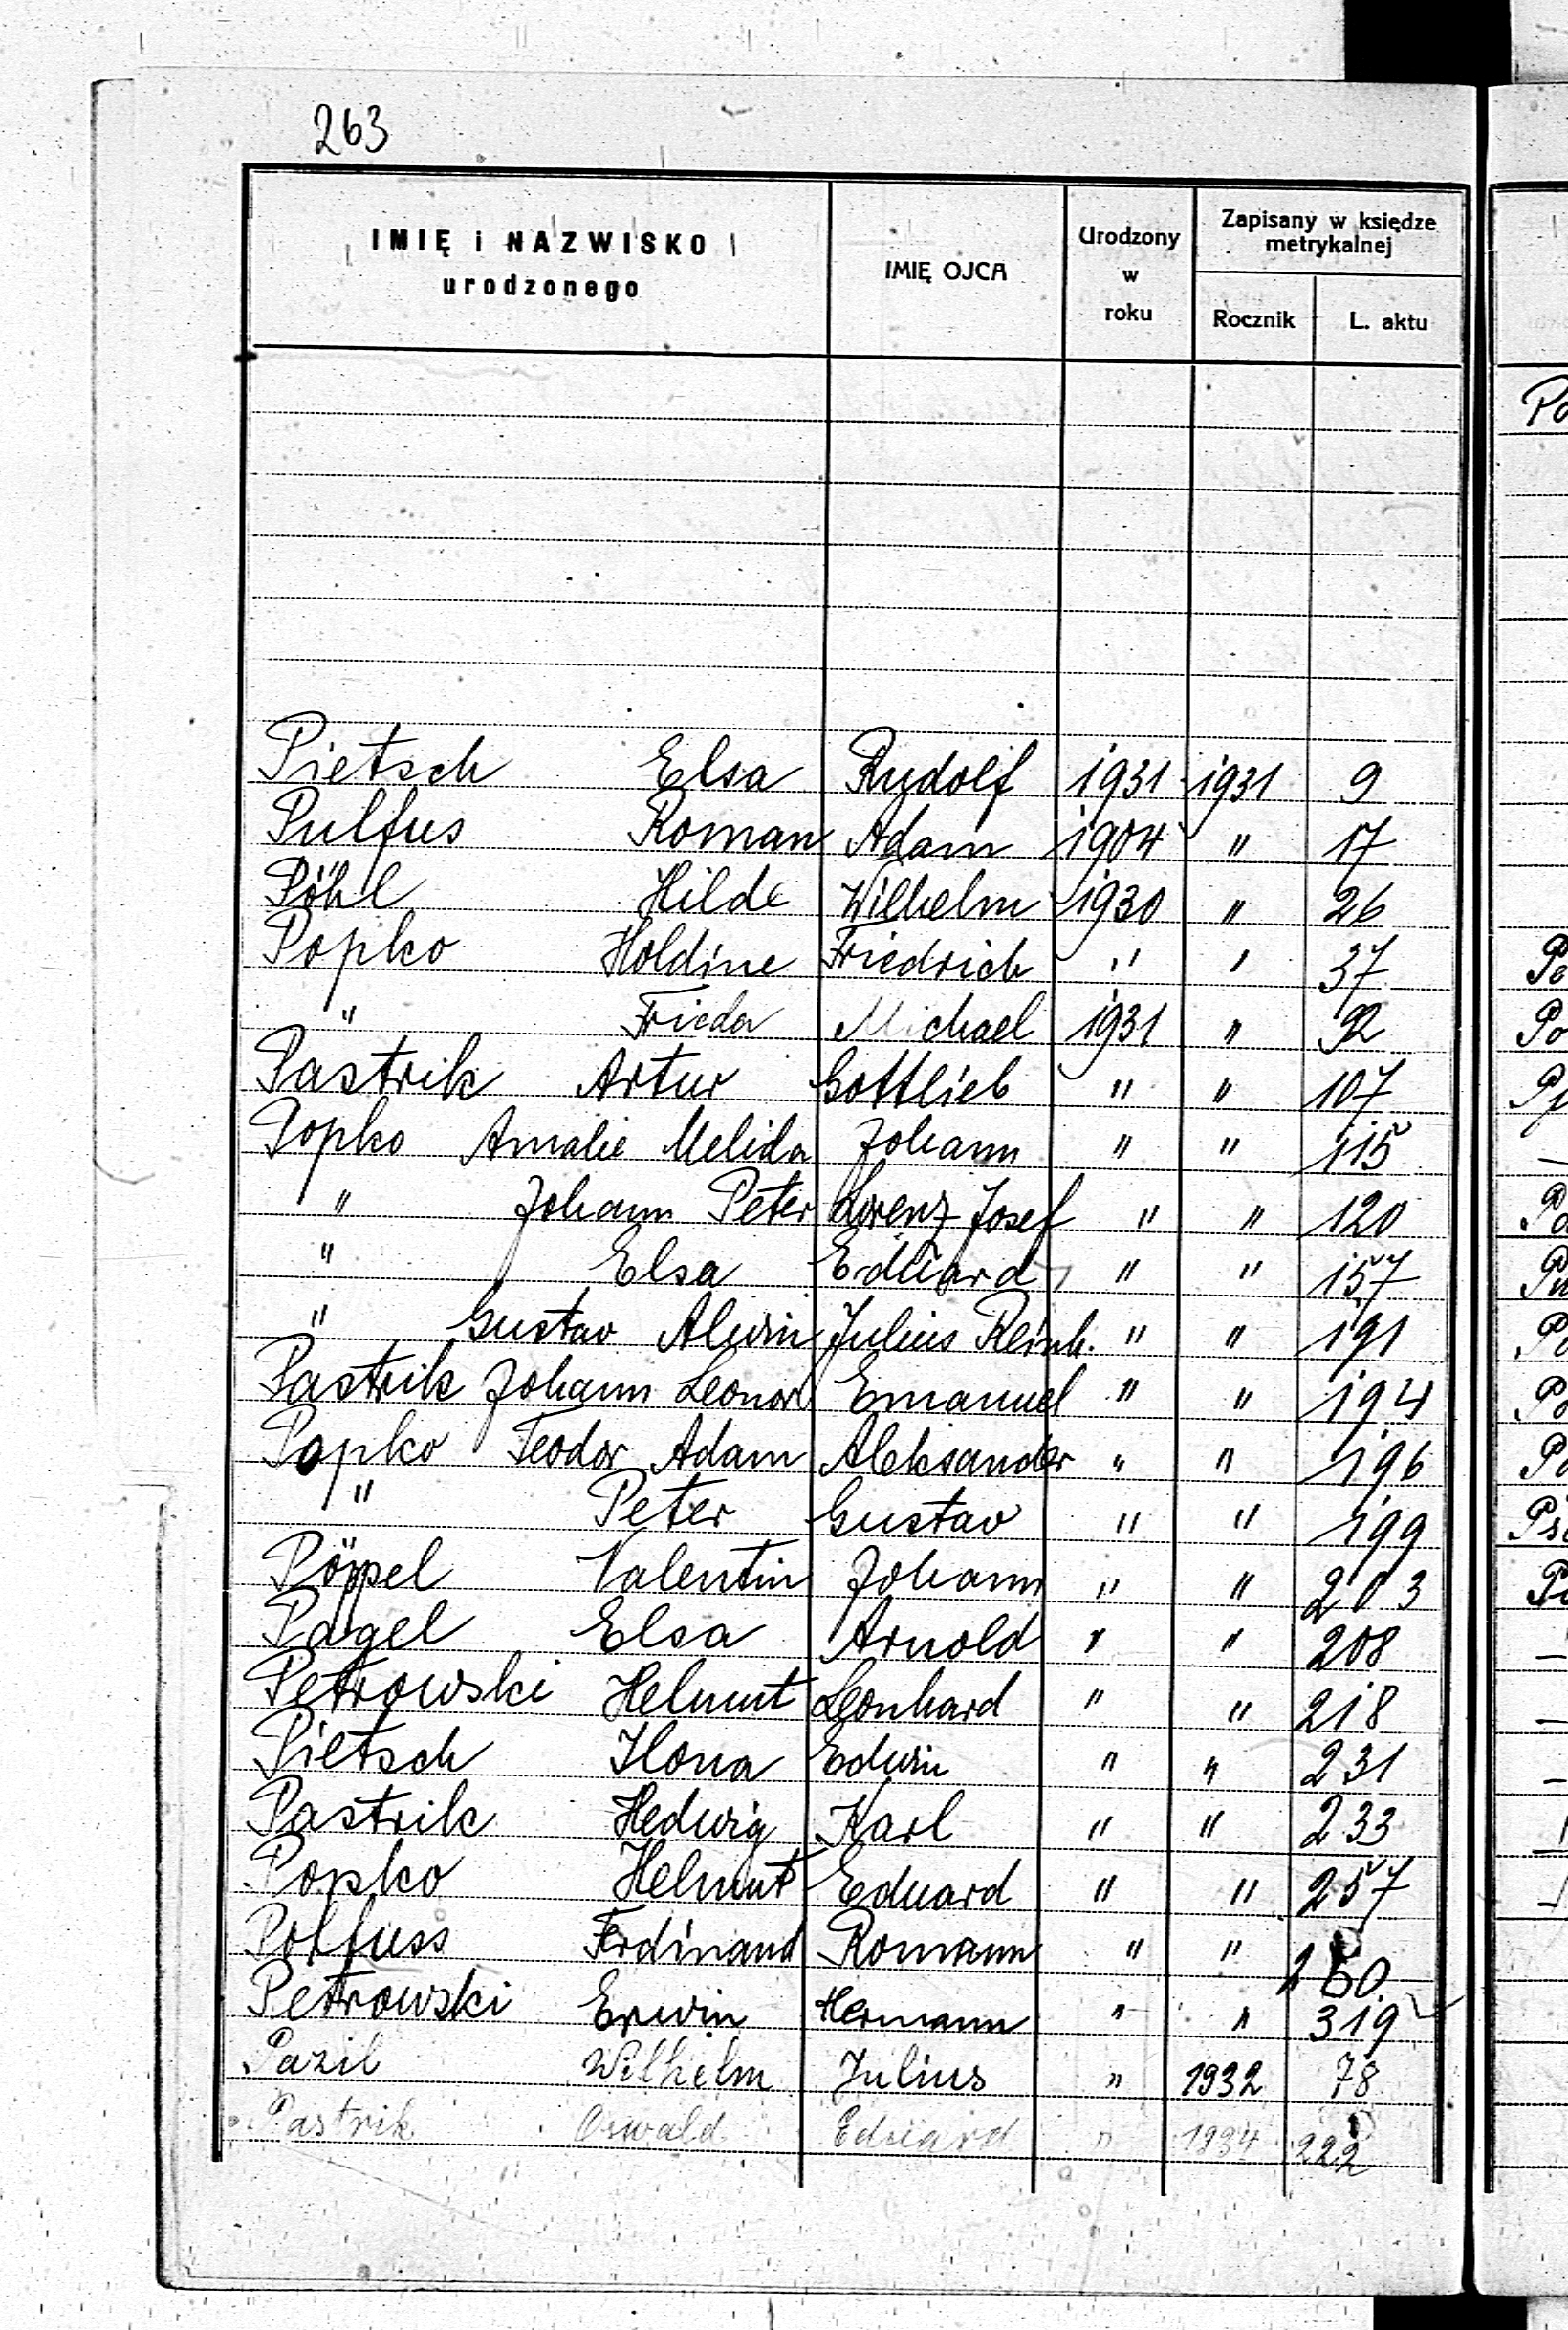 263
IMIĘ i NAZWISKO urodzonego IMIĘ OJCA Urodzony w roku Zapisany w księdze metrykalnej Rocznik L. aktu
Pietsch Elsa Rudolf 1931 1931 9
Pulfus Roman Adam 1904 " 17
Pöhl Hilde Wilhelm 1930 " 26
Popko Holdine Friedrich " " 37
" Frieda Michael 1931 "
Pastrik Artur Gottlieb " " 107
Popko Amalie Melida Johann " " 115
" Johann Peter Lorenz Josef " " 120
" Elsa Eduard " " 157
" Gustav Alwin Julius Reinh. " " 191
Pastrik Johann Leonor Emanuel " " 194
Popko Teodor Adam Aleksander " " 196
" Peter Gustav " " 199
Pöppel Valentin Johann " " 203
Pagel Elsa Arnold " " 208
Petrowski Helmut Leonhard " " 218
Pietsch Ilona Edwin " " 231
Pastrik Hedwig Karl " " 233
Popko Helmut Eduard " " 257
Polfuss Ferdinand Romann " "
Petrowski Erwin Hermann " " 319
Pazil Wilhelm Julius " 1932 78
Pastrik Oswald Eduard " 1934 222